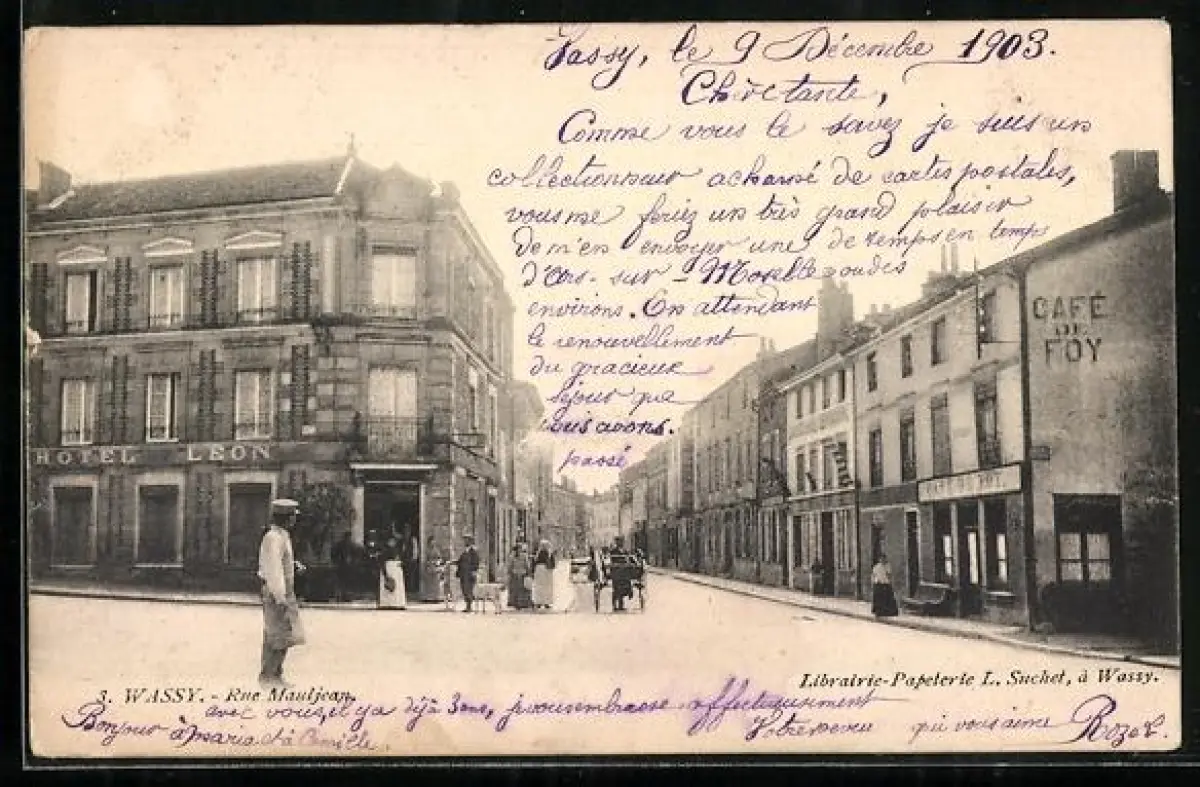 Vassy, le 9 Décembre 1903.
Chère tante,
Comme vous le savez je suis un
collectionneur acharné de cartes postales,
vous me feriez un très grand plaisir
de m'en envoyer une de temps en temps
d'Ars-sur-Moselle ou des
environs. En attendant
le renouvellement
du gracieux
séjour que
nous avons
passé
CAFÉ
DE
FOY
HOTEL LEON
CAFÉ DE FOY
3. WASSY. - Rue Mauljean.
Librairie-Papeterie L. Suchet, à Wassy.
avec vous, il y a déjà 3 ans, je vous embrasse affectueusement
Bonjour à Maria et à Camille.
Votre neveu qui vous aime